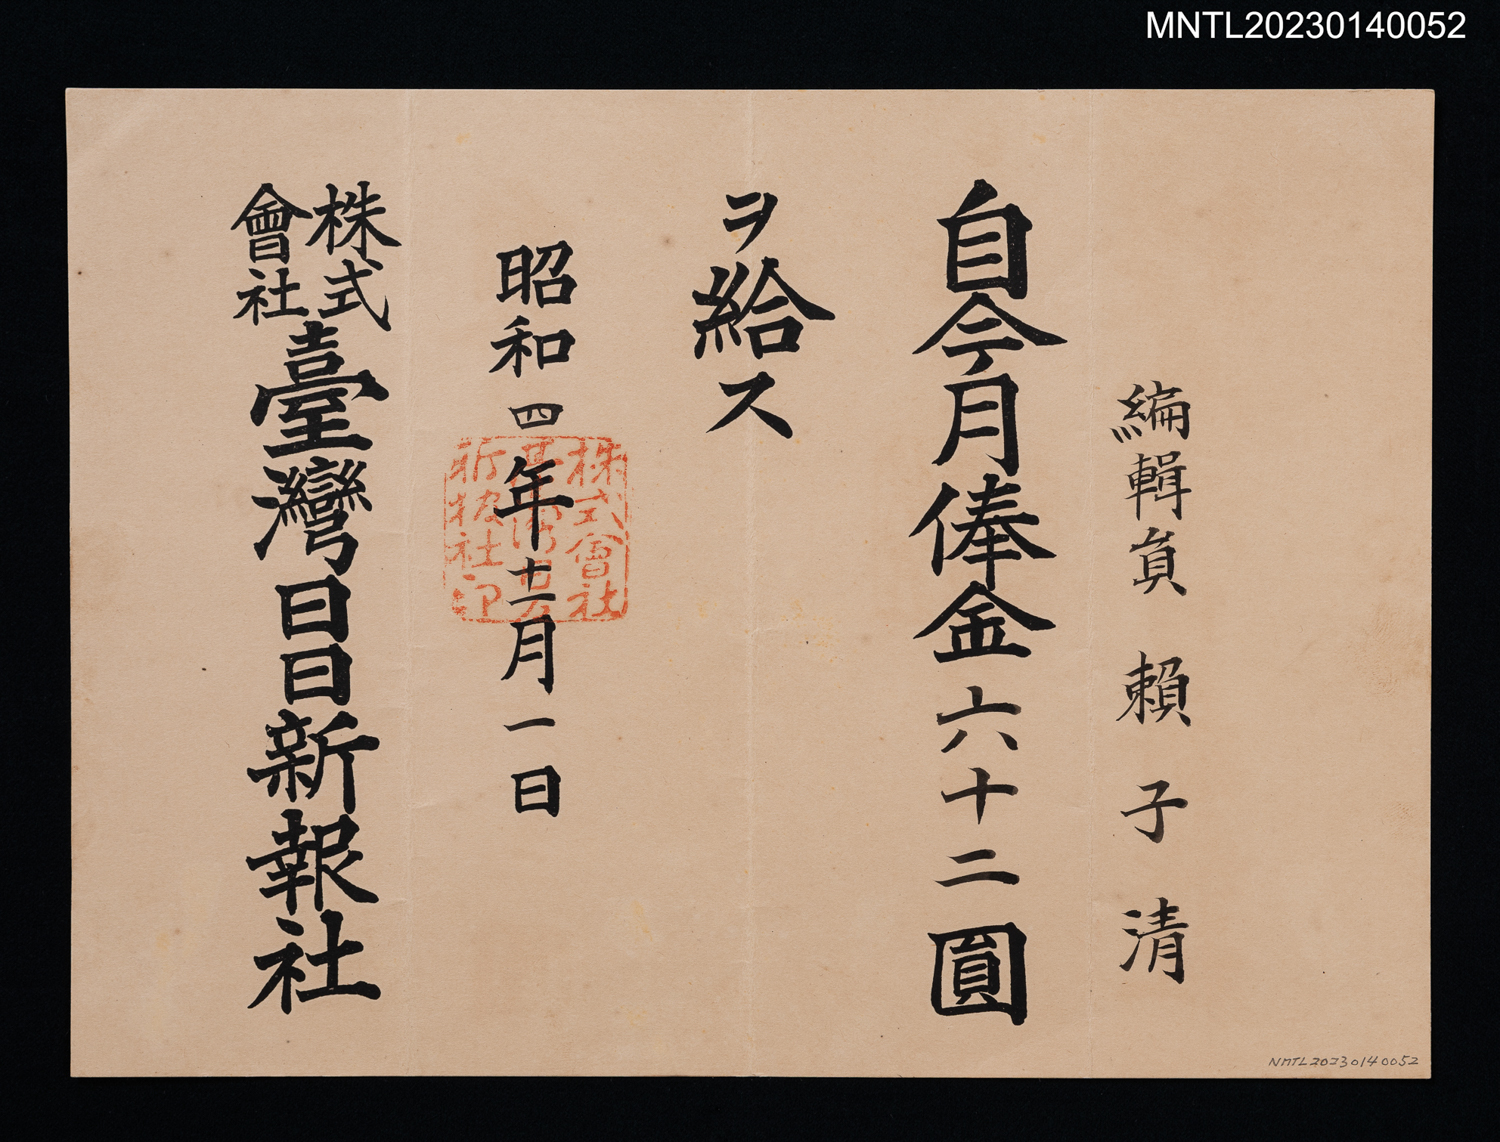 MNTL20230140052
編輯員 賴子清
自今月俸金六十二圓
ヲ給ス
昭和四年十二月一日
株式會社臺灣日日新報社
株式會社
臺灣日日
新報社印
NMTL20230140052